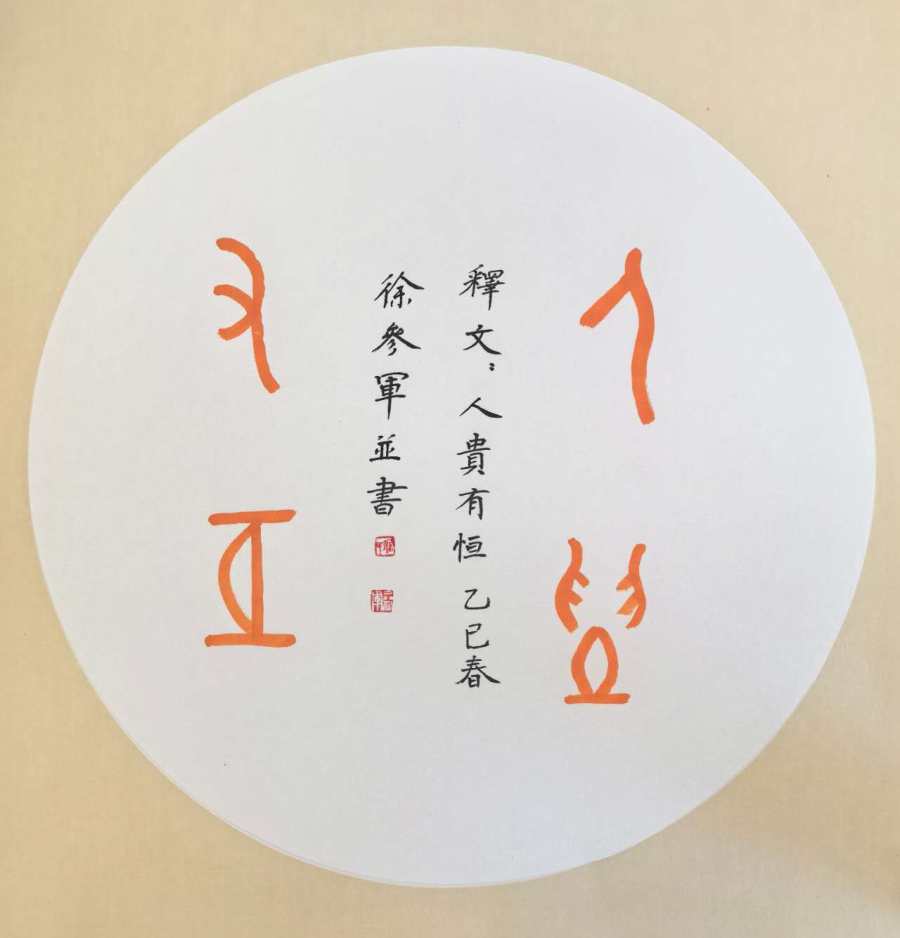 人貴
有恒
釋文：人貴有恒 乙巳春
徐參軍並書